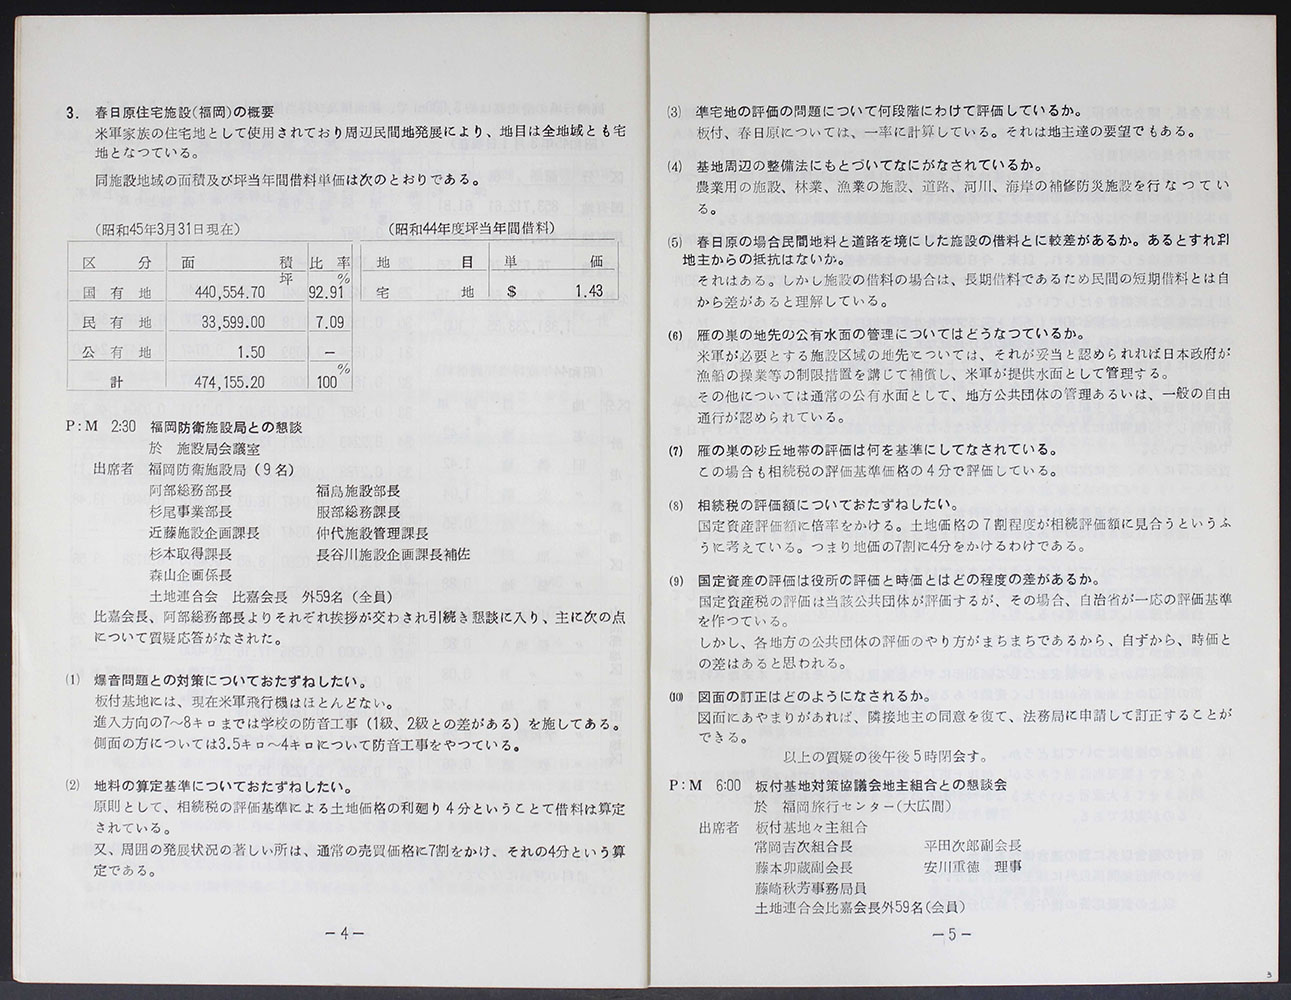 3. 春日原住宅施設(福岡)の概要
米軍家族の住宅地として使用されており周辺民間地発展により、地目は全地域とも宅
地となつている。
同施設地域の面積及び坪当年間借料単価は次のとおりである。
(昭和45年3月31日現在)
区 分 面 積 比 率
国 有 地 440,554.70坪 92.91%
民 有 地 33,599.00 7.09
公 有 地 1.50 −
計 474,155.20 100%
(昭和44年度坪当年間借料)
地 目 単 価
宅 地 $ 1.43
P:M 2:30 福岡防衛施設局との懇談
於 施設局会議室
出席者 福岡防衛施設局(9名)
阿部総務部長 福島施設部長
杉尾事業部長 服部総務課長
近藤施設企画課長 仲代施設管理課長
杉本取得課長 長谷川施設企画課長補佐
森山企画係長
土地連合会 比嘉会長 外59名(全員)
比嘉会長、阿部総務部長よりそれぞれ挨拶が交わされ引続き懇談に入り、主に次の点
について質疑応答がなされた。
(1) 爆音問題との対策についておたずねしたい。
板付基地には、現在米軍飛行機はほとんどない。
進入方向の7〜8キロまでは学校の防音工事(1級、2級との差がある)を施してある。
側面の方については3.5キロ〜4キロについて防音工事をやつている。
(2) 地料の算定基準についておたずねしたい。
原則として、相続税の評価基準による土地価格の利廻り4分ということて借料は算定
されている。
又、周囲の発展状況の著しい所は、通常の売買価格に7割をかけ、それの4分という算
定である。
−4−
(3) 準宅地の評価の問題について何段階にわけて評価しているか。
板付、春日原については、一率に計算している。それは地主達の要望でもある。
(4) 基地周辺の整備法にもとづいてなにがなされているか。
農業用の施設、林業、漁業の施設、道路、河川、海岸の補修防災施設を行なつてい
る。
(5) 春日原の場合民間地料と道路を境にした施設の借料とに較差があるか。あるとすれば
地主からの抵抗はないか。
それはある。しかし施設の借料の場合は、長期借料であるため民間の短期借料とは自
から差があると理解している。
(6) 雁の巣の地先の公有水面の管理についてはどうなつているか。
米軍が必要とする施設区域の地先については、それが妥当と認められれば日本政府が
漁船の操業等の制限措置を講じて補償し、米軍が提供水面として管理する。
その他については通常の公有水面として、地方公共団体の管理あるいは、一般の自由
通行が認められている。
(7) 雁の巣の砂丘地帯の評価は何を基準にしてなされている。
この場合も相続税の評価基準価格の4分で評価している。
(8) 相続税の評価額についておたずねしたい。
国定資産評価額に倍率をかける。土地価格の7割程度が相続評価額に見合うというふ
うに考えている。つまり地価の7割に4分をかけるわけである。
(9) 国定資産の評価は役所の評価と時価とはどの程度の差があるか。
国定資産税の評価は当該公共団体が評価するが、その場合、自治省が一応の評価基準
を作つている。
しかし、各地方の公共団体の評価のやり方がまちまちであるから、自ずから、時価と
の差はあると思われる。
(10) 図面の訂正はどのようになされるか。
図面にあやまりがあれば、隣接地主の同意を復て、法務局に申請して訂正することが
できる。
以上の質疑の後午後5時閉会す。
P:M 6:00 板付基地対策協議会地主組合との懇談会
於 福岡旅行センター(大広間)
出席者 板付基地々主組合
常岡吉次組合長 平田次郎副会長
藤本卯蔵副会長 安川重徳 理事
藤崎秋芳事務局員
土地連合会比嘉会長外59名(会員)
−5−